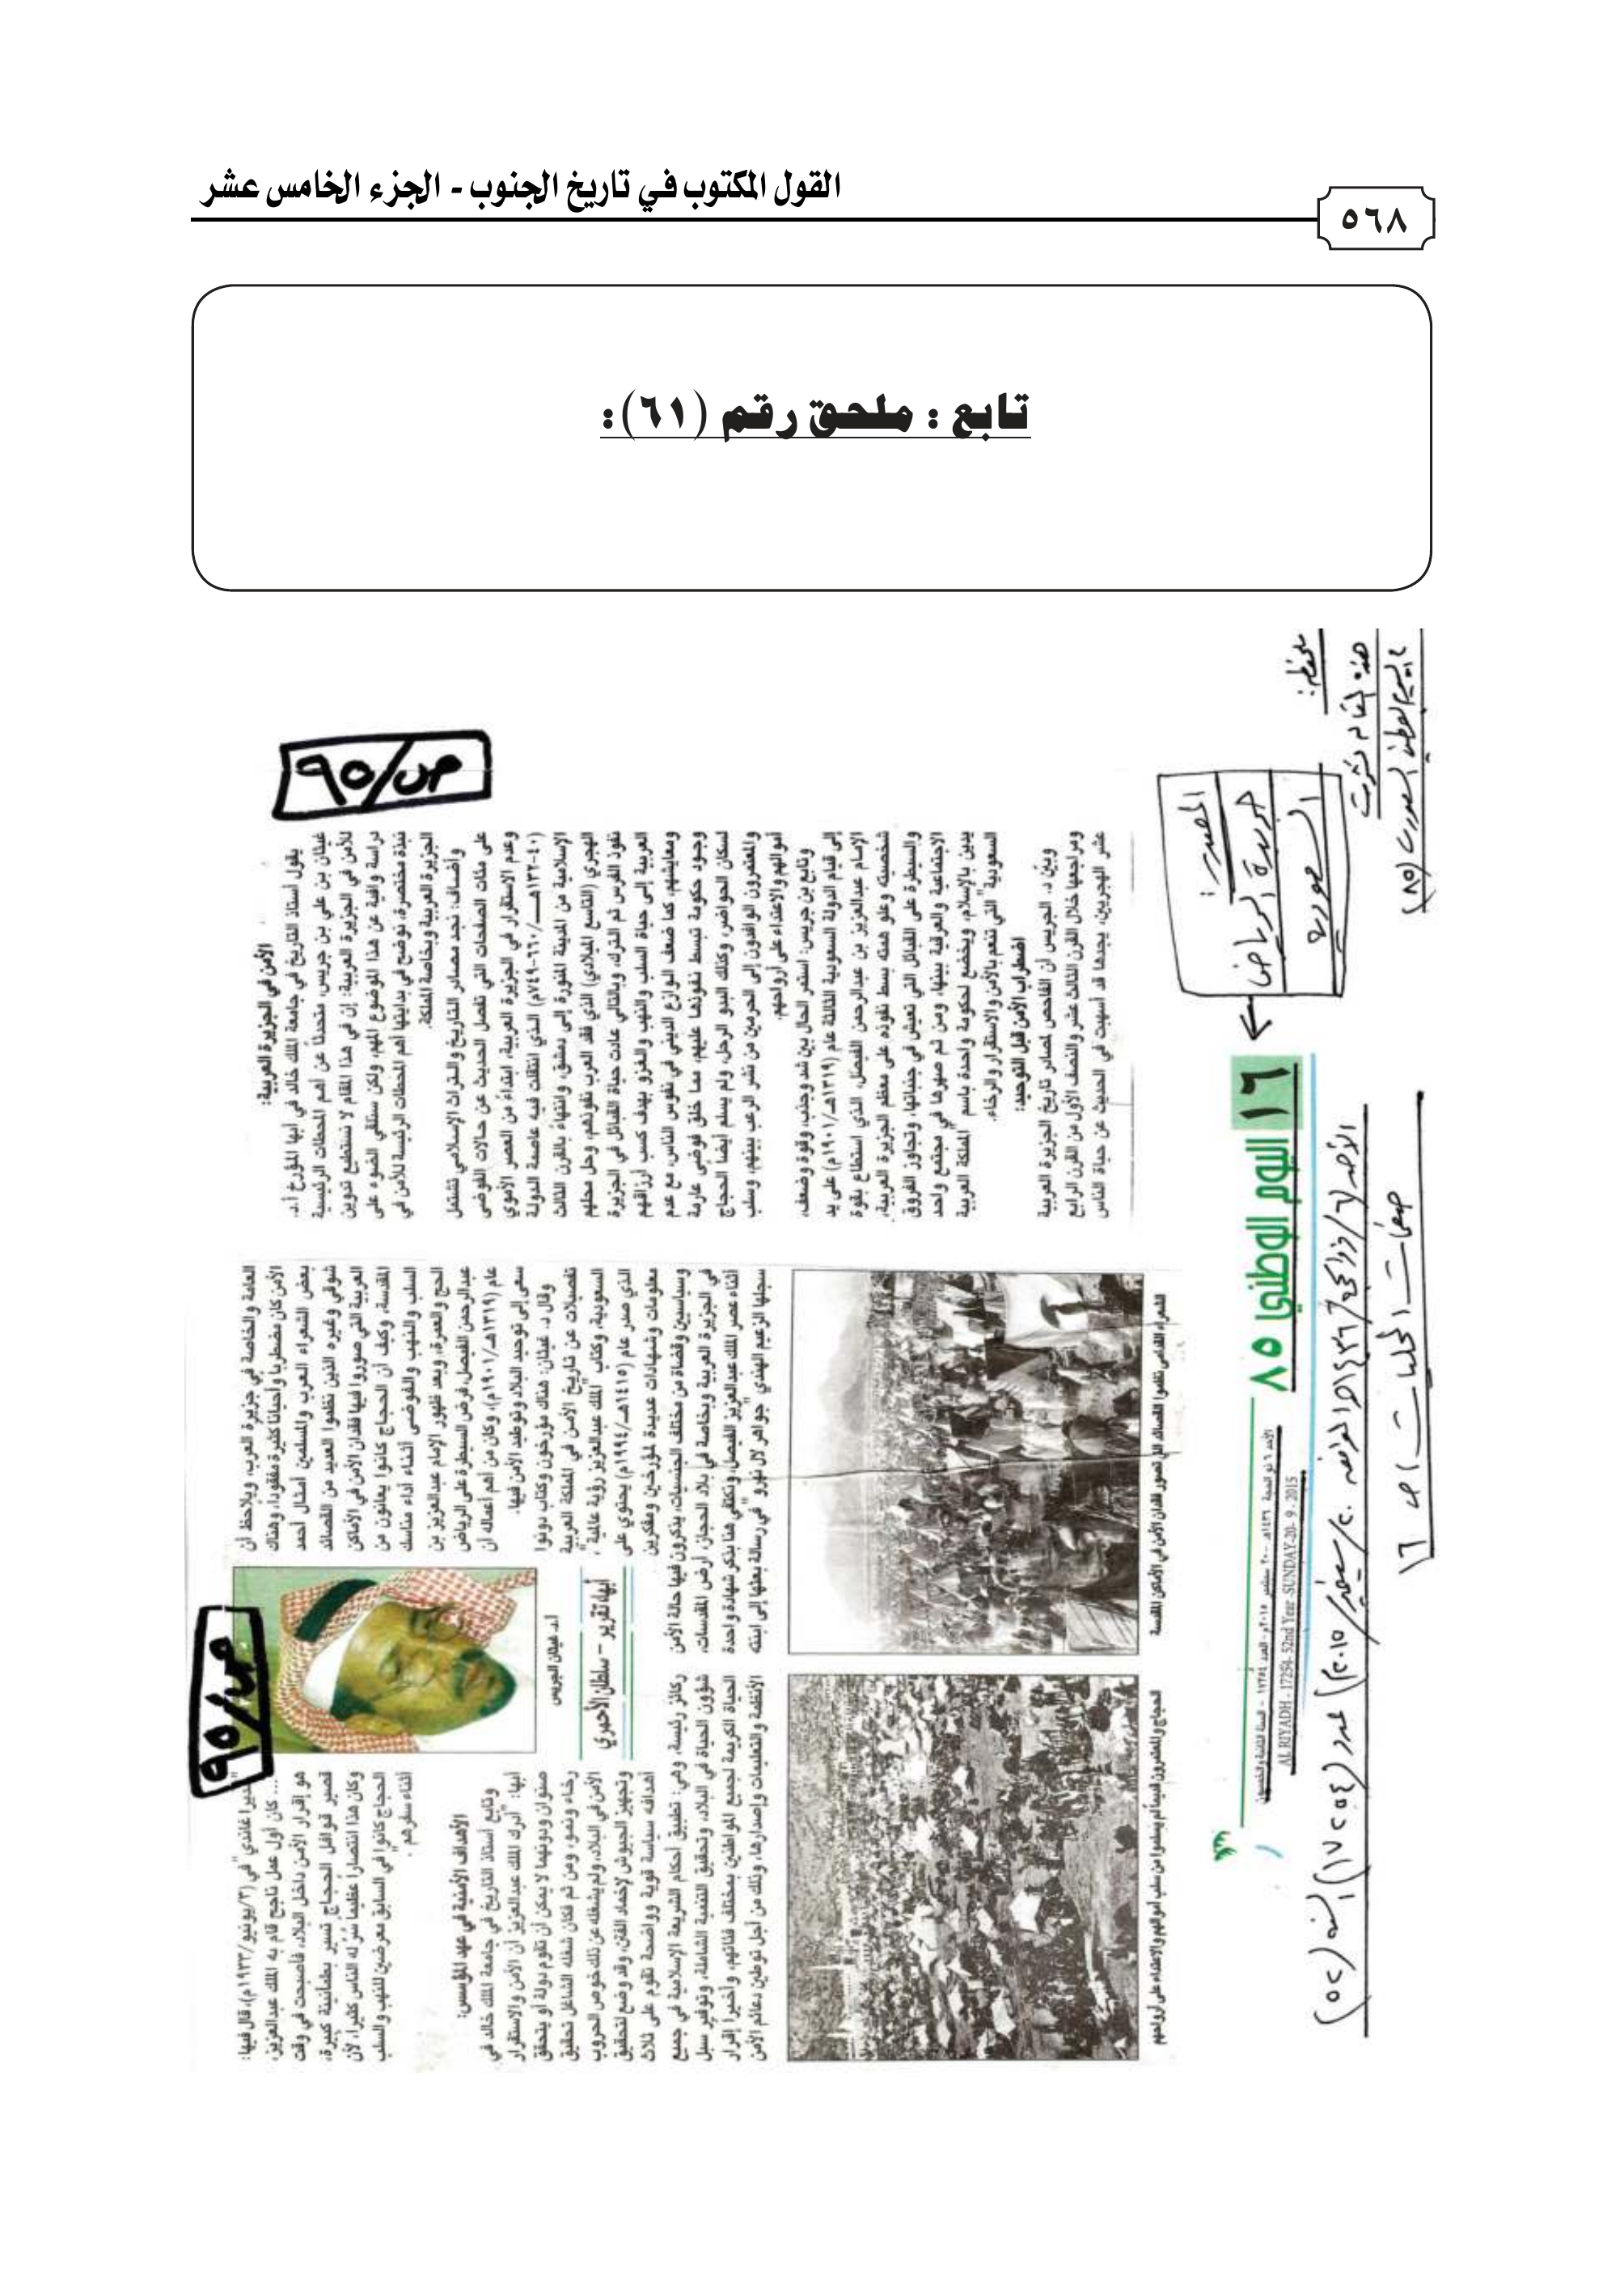 القول المكتوب في تاريخ الجنوب - الجزء الخامس عشر
٥٦٨
تابع : ملحق رقم (٦١):
ص/٩٥
الأمن في الجزيرة العربية:
يقول أستاذ التاريخ في جامعة الملك خالد في أبها المؤرخ أ.د.
غيثان بن علي بن جريس، متحدثاً عن أهم المحطات الرئيسية
للأمن في الجزيرة العربية: إن في هذا المقام لا نستطيع تدوين
دراسة وافية عن هذا الموضوع المهم، ولكن سنلقي الضوء على
نبذة مختصرة، نوضح في بدايتها أهم المحطات الرئيسة للأمن في
الجزيرة العربية وبخاصة المملكة.
وأضاف: نجد مصادر التاريخ والتراث الإسلامي تشتمل
على مئات الصفحات التي تفصل الحديث عن حالات الفوضى
وعدم الاستقرار في الجزيرة العربية، ابتداءً من العصر الأموي
(٤٠-١٣٢هـ/٦٦٠-٧٤٩م) الذي انتقلت فيه عاصمة الدولة
الإسلامية من المدينة المنورة إلى دمشق، وانتهاء بالقرن الثالث
الهجري (التاسع الميلادي) الذي فقد العرب نفوذهم، وحل محلهم
نفوذ الفرس ثم الترك، وبالتالي عادت حياة القبائل في الجزيرة
العربية إلى حياة السلب والنهب والغزو بهدف كسب أرزاقهم
ومعايشهم، كما ضعف الوازع الديني في نفوس الناس، مع عدم
وجود حكومة تبسط نفوذها عليهم، مما خلق فوضى عارمة
لسكان الحواضر، وكذلك البدو الرحل، ولم يسلم أيضاً الحجاج
والمعتمرون الوافدون إلى الحرمين من نشر الرعب بينهم، وسلب
أموالهم والاعتداء على أرواحهم.
وتابع بن جريس: استمر الحال بين شد وجذب، وقوة وضعف،
إلى قيام الدولة السعودية الثالثة عام (١٣١٩هـ/١٩٠١م) على يد
الإمام عبدالعزيز بن عبدالرحمن الفيصل، الذي استطاع بقوة
شخصيته وعلو همته بسط نفوذه على معظم الجزيرة العربية،
والسيطرة على القبائل التي تعيش في جنباتها، وتجاوز الفروق
الاجتماعية والعرقية بينها، ومن ثم صهرها في مجتمع واحد
يدين بالإسلام، ويخضع لحكومة واحدة باسم "المملكة العربية
السعودية" التي تنعم بالأمن والاستقرار والرخاء.
اضطراب الأمن قبل التوحيد:
وبيّن د. الجريس أن الفاحص لمصادر تاريخ الجزيرة العربية
ومراجعها خلال القرن الثالث عشر والنصف الأول من القرن الرابع
عشر الهجريين، يجدها قد أسهبت في الحديث عن حياة الناس
العامة والخاصة في جزيرة العرب، ويلاحظ أن
الأمن كان مضطربا وأحيانا كثيرة مفقودا، وهناك
بعض الشعراء العرب والمسلمين أمثال أحمد
شوقي وغيره الذين نظموا العديد من القصائد
العربية التي صوروا فيها فقدان الأمن في الأماكن
المقدسة، وكيف أن الحجاج كانوا يعانون من
السلب والنهب والفوضى أثناء أداء مناسك
الحج والعمرة، وبعد ظهور الإمام عبدالعزيز بن
عبدالرحمن الفيصل، فرض السيطرة على الرياض
عام (١٣١٩هـ/١٩٠١م)، وكان من أهم أعماله أن
سعى إلى توحيد البلاد وتوطيد الأمن فيها.
وقال د. غيثان: هناك مؤرخون وكتاب دونوا
تفصيلات عن تاريخ الأمن في المملكة العربية
السعودية، وكتاب "الملك عبدالعزيز رؤية عالمية"،
الذي صدر عام (١٤١٥هـ/١٩٩٤م) يحتوي على
معلومات وشهادات عديدة لمؤرخين ومفكرين
وسياسيين وقضاة من مختلف الجنسيات، يذكرون فيها حالة الأمن
في الجزيرة العربية وبخاصة في بلاد الحجاز، أرض المقدسات،
أثناء عصر الملك عبدالعزيز الفيصل، ونكتفي هنا بذكر شهادة واحدة
سجلها الزعيم الهندي "جواهر لال نهرو" في رسالة بعثها إلى ابنته
الشعراء القدامى نظموا القصائد التي تصور فقدان الأمن في الأماكن المقدسة
ص/٩٥
أ.د. غيثان الجريس
أبها تقرير - سلطان الأحمري
"أنديرا غاندي" في (٣/يونيو/١٩٣٣م)، قال فيها:
... كان أول عمل ناجح قام به الملك عبدالعزيز،
هو إقرار الأمن داخل البلاد، فأصبحت في وقت
قصير قوافل الحجاج تسير بطمأنينة كبيرة،
وكان هذا انتصارا عظيما سُر له الناس كثيرا، لأن
الحجاج كانوا في السابق معرضين للنهب والسلب
أثناء سفرهم.
الأهداف الأمنية في عهد المؤسس:
وتابع أستاذ التاريخ في جامعة الملك خالد في
أبها: "أدرك الملك عبدالعزيز أن الأمن والاستقرار
صنوان وبدونهما لا يمكن أن تقوم دولة أو يتحقق
رخاء ونمو، ومن ثم فكان شغله الشاغل تحقيق
الأمن في البلاد، ولم يشغله عن ذلك خوض الحروب
وتجهيز الجيوش لإخماد الفتن، وقد وضع لتحقيق
أهدافه سياسة قوية وواضحة تقوم على ثلاث
ركائز رئيسة، وهي: تطبيق أحكام الشريعة الإسلامية في جميع
شؤون الحياة في البلاد، وتحقيق التنمية الشاملة، وتوفير سبل
الحياة الكريمة لجميع المواطنين بمختلف فئاتهم، وأخيرا إقرار
الأنظمة والتعليمات وإصدارها، وذلك من أجل توطين دعائم الأمن
الحجاج والمعتمرون قديماً لم يسلموا من سلب أموالهم والاعتداء على أرواحهم
المصدر:
جريدة الرياض
السعودية
ملحوظة:
هذه المقالة نشرت
في اليوم الوطني السعودي (٨٥)
اليوم الوطني ٨٥
١٦
الأحد ٦ ذو الحجة ١٤٣٦هـ - ٢٠ سبتمبر ٢٠١٥م - العدد ١٧٢٥٤ - السنة الثانية والخمسون
AL RIYADH - 17254- 52nd Year -SUNDAY-20- 9 - 2015
الأحد ٦/ذو الحجة/١٤٣٦هـ الموافق ٢٠/سبتمبر/٢٠١٥م) عدد (١٧٢٥٤) السنة (٥٢)
صفحات المحليات ص ١٦